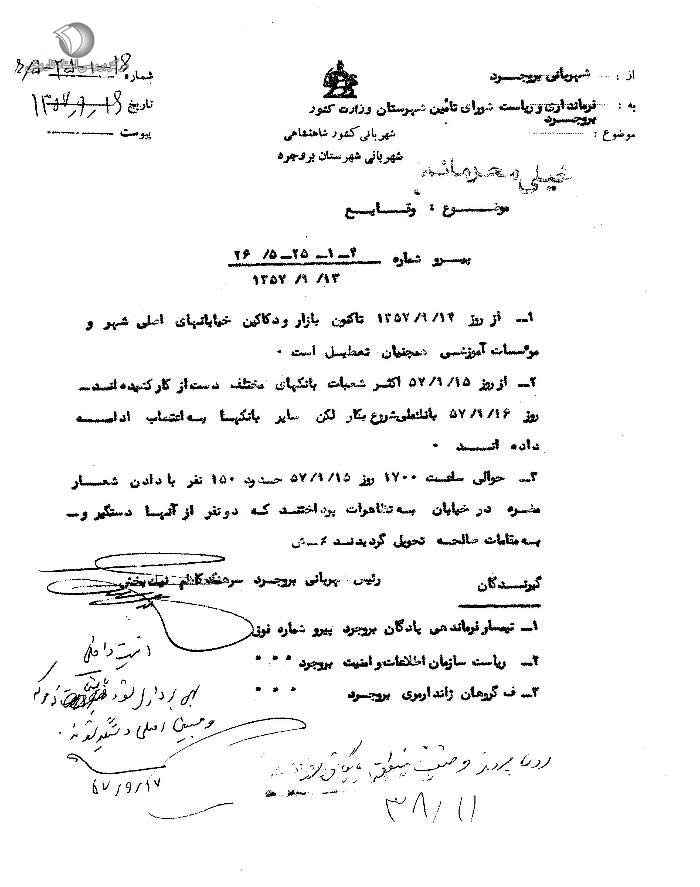 از : شهربانی بروجرد
به : فرمانداری و ریاست شورای تأمین شهرستان بروجرد
موضوع :
وزارت کشور
شهربانی کشور شاهنشاهی
شهربانی شهرستان بروجرد
شماره
تاریخ ۱۳۵۷/۹/۱۸
پیوست
خیلی محرمانه
موضوع : وقایع
پیرو شماره ۴ــ۱ــ۲۵ــ۵/ ۲۶
۱۳۵۷/ ۹/ ۱۳
۱ــ از روز ۱۳۵۷/۹/۱۴ تاکنون بازار و دکاکین خیابانهای اصلی شهر و
موئسسات آموزشی همچنان تعطیل است ۰
۲ــ از روز ۵۷/۹/۱۵ اکثر شعبات بانکهای مختلف دست از کار کشیده اند ــ
روز ۵۷/۹/۱۶ بانک ملی شروع بکار لکن سایر بانکها به اعتصاب ادامه
داده اند ۰
۳ــ حوالی ساعت ۱۷۰۰ روز ۵۷/۹/۱۵ حدود ۱۵۰ نفر با دادن شعار
مضره در خیابان به تظاهرات پرداختند که دو نفر از آنها دستگیر و ــ
به مقامات صالحه تحویل گردیدند
رئیس شهربانی بروجرد سرهنگ کاظم نیک بخش
گیرندگان
۱ــ تیمسار فرماندهی پادگان بروجرد پیرو شماره فوق
۲ــ ریاست سازمان اطلاعات و امنیت بروجرد " " "
۳ــ ف گروهان ژاندارمری بروجرد " " "
امنیت داخلی
و مسببین اصلی دستگیر شوند .
۵۷/۹/۱۷
۳۸/۱۱